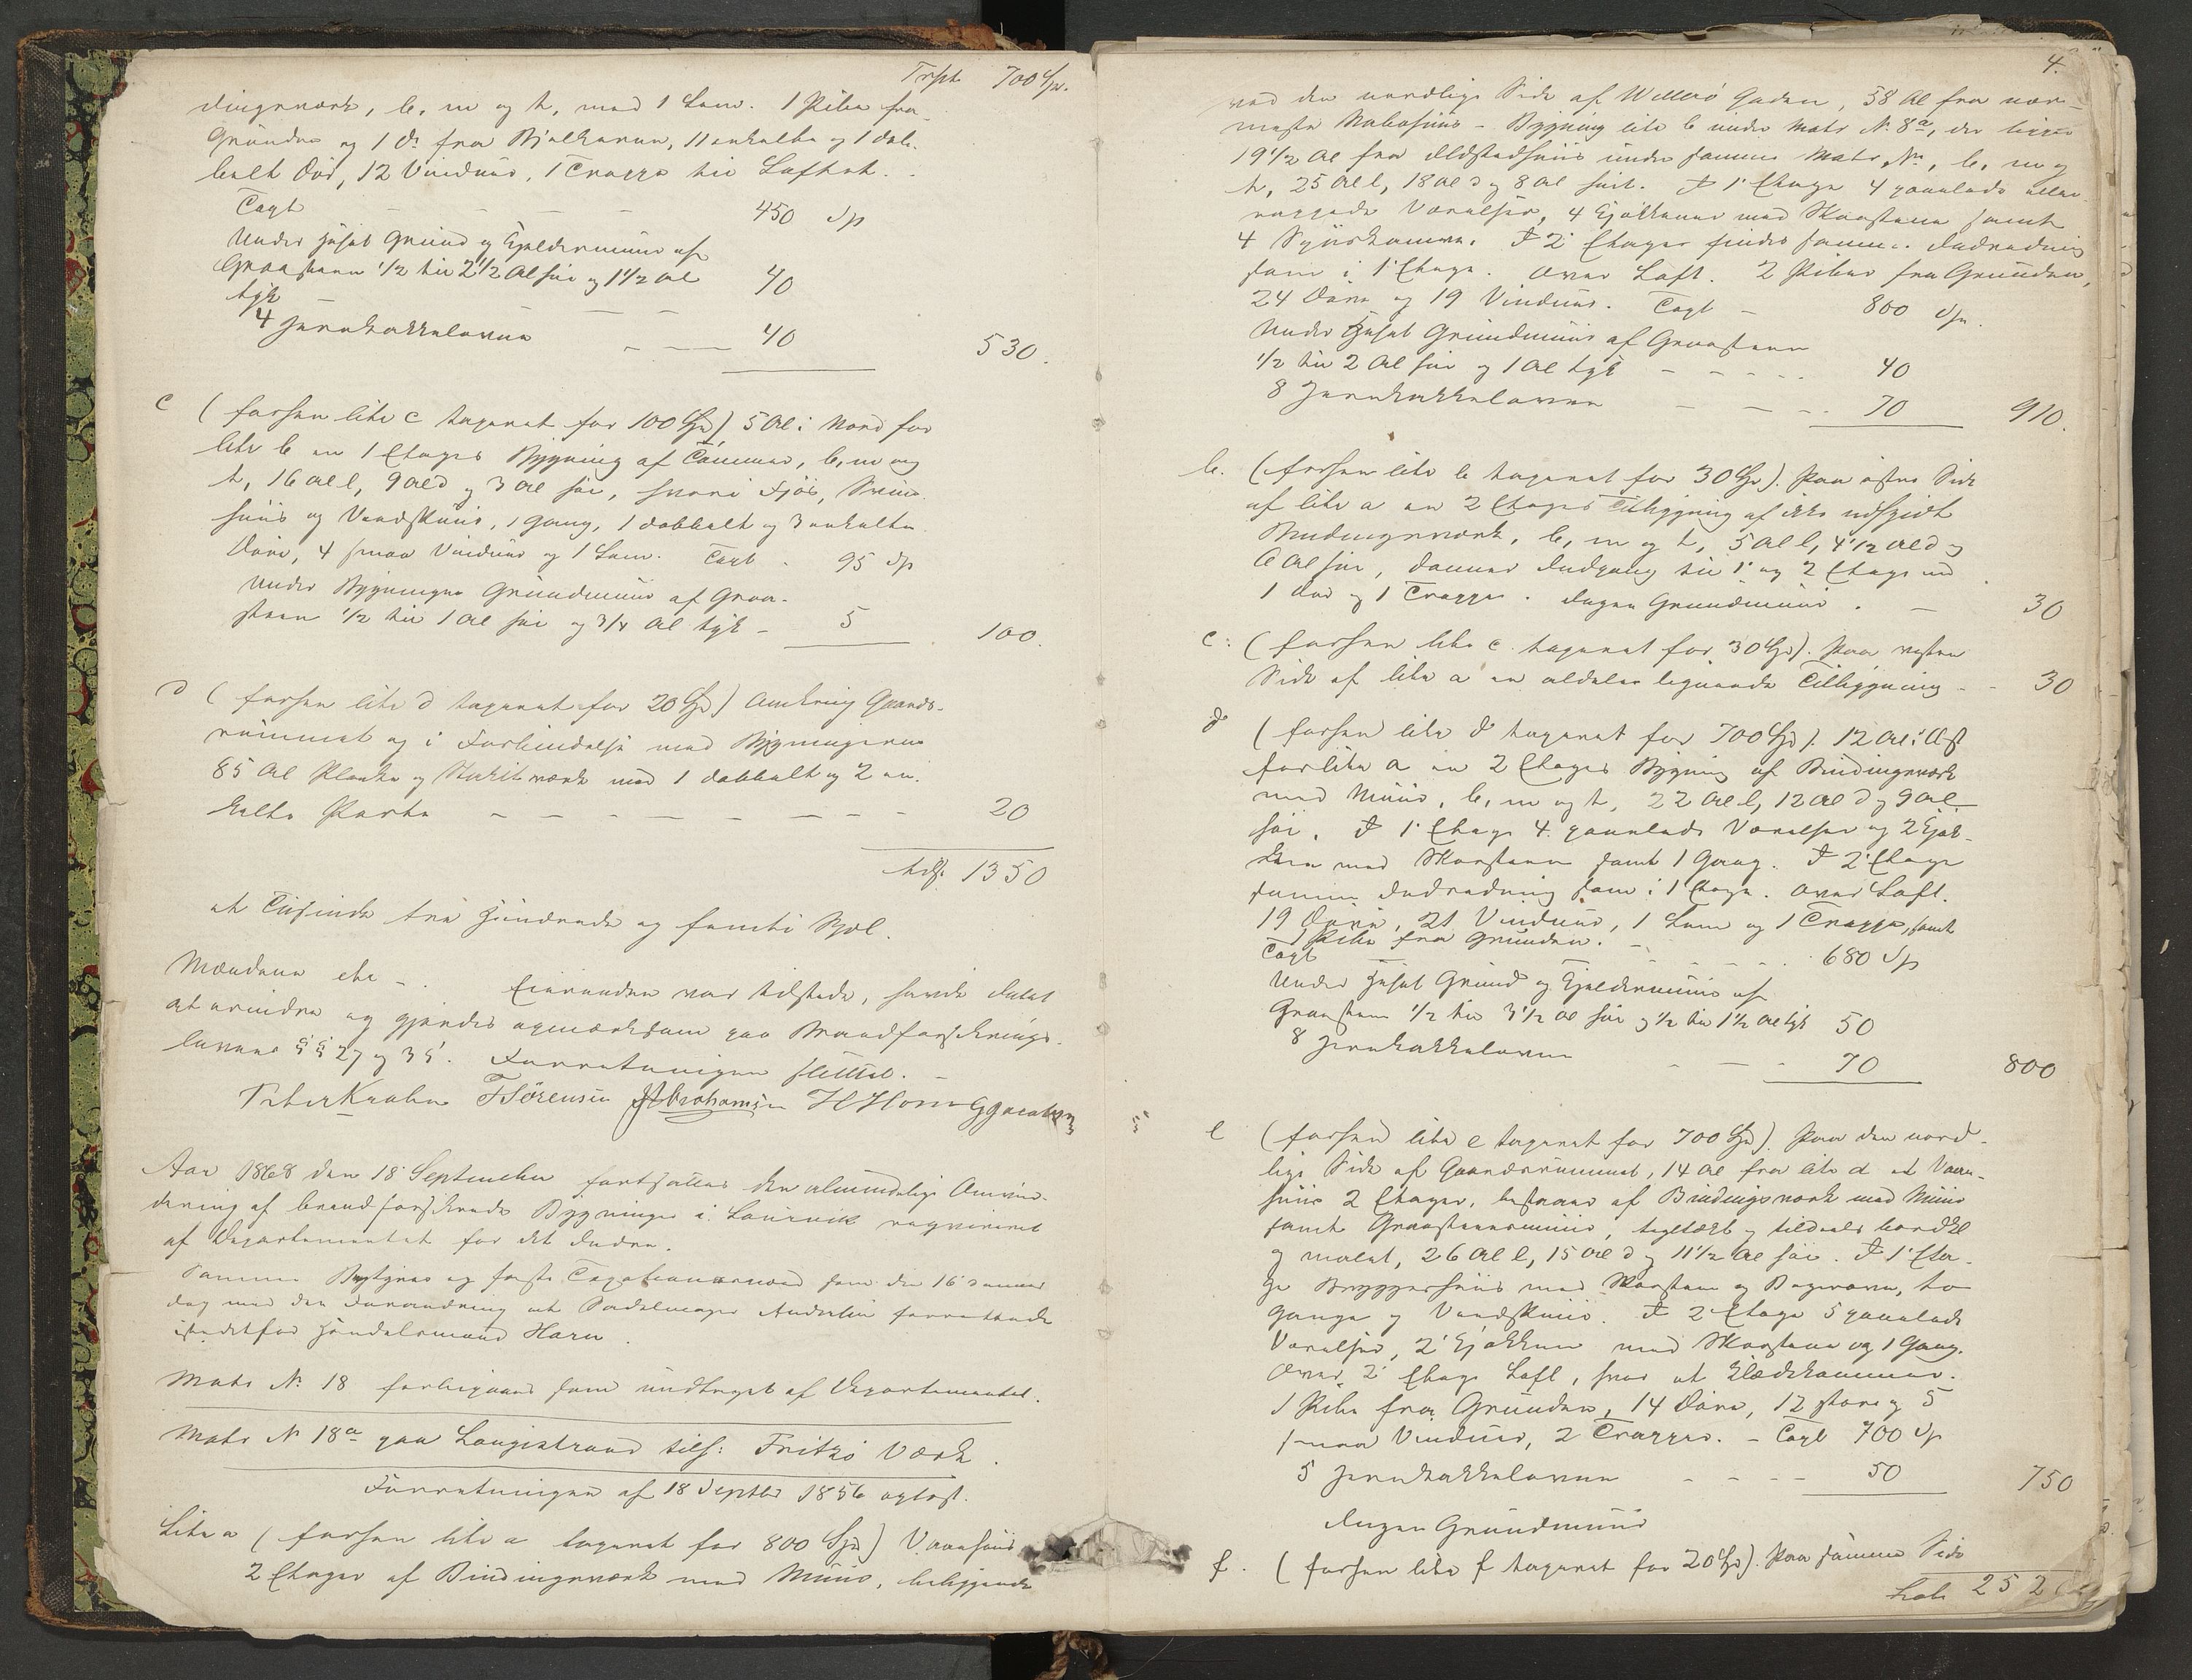 Trsp. 700 Spd.
dingsværk, b, m og t, med 1 Lem. 1 Pibe fra
Grunden og 1 do fra Bjelkerne, 11 enkelte og 1 dob-
belt Dør, 12 Vinduer, 1 Trappe til Loftet.
Taxt - - - - 450 Sp
Under Huset Grund og Kjeldermuur af
Graasteen 1/2 til 2 1/2 Al høi og 1 1/2 Al 40
tyk
4 Jernkakkelovne - - 40 530.
c (forhen litr c taxeret for 100 Spd) 5 Al i Nord for
litr b en 1 Etages Bygning af Tømmer, b, m og
t, 16 Al l, 9 Al d og 3 Al høi, hvori Fjøs, Sviin-
huus og Vedskuur, 1 Gang, 1 dobbelt og 3 enkelte
Døre, 4 smaa Vinduer og 1 Lem. Taxt - 95 Sp
Under Bygningen Grundmuur af Graa-
steen 1/2 til 1 Al høi og 3/4 Al tyk - 5 100.
d (forhen litr d taxeret for 20 Spd) Omkring Gaards-
rummet og i Forbindelse med Bygningerne
85 Al Planke og Stakitværk med 1 dobbelt og 2 en-
kelte Porte - - - - - - - - 20
tils. 1350
et Tusinde tre Hundrede og femti Spdl.
Mændene etc -. Eieranden var tilstede, havde Intet
at erindre og gjordes opmærksom paa Brandforsikrings-
lovens §§ 27 og 35. Forretningen sluttet. -
Peter Krohn TSörensen JAbrahamsen HHorn GJacobsen
Aar 1868 den 18 September fortsattes den almindelige Omvur-
dering af brandforsikrede Bygninger i Laurvik reqvireret
af Departementet for det Indre.
Samme Bestyrer og første Taxationsmænd som den 16 samme
dag med den Forandring at Sadelmager Andersen forrettede
istedetfor Handelsmand Horn.
Matr No 18 forbigaaes som undtaget af Departementet.
Matr No 18a paa Langestrand tilh: Fritzø Værk.
Forretningen af 18 Septbr 1856 oplæst.
Litr a (forhen litr a taxeret for 800 Spd) Vaanhuus
2 Etager af Bindingsværk med Muur, beliggende
4.
ved den nordlige Side af Willerø Gaden, 58 Al fra nær-
meste Nabohuus - Bygning litr b under Matr No 8a, der ligger
19 1/2 Al fra Ildstedhuus under samme Matr. No, b, m og
t, 25 Al l, 18 Al d og 8 Al høit. I 1 Etage 4 panelede eller
rappede Værelser, 4 Kjøkkener med Skorstene samt
4 Spiiskamre. I 2 Etage findes samme Indredning
som i 1 Etage. Over Loft. 2 Piber fra Grunden,
24 Døre og 19 Vinduer. Taxt - 800 Sp.
Under Huset Grundmuur af Graasteen
1/2 til 2 Al høi og 1 Al tyk - - - - - 40
8 Jernkakkelovne - - - 70 910.
b. (forhen litr b taxeret for 30 Spd). Paa østre Side
af litr a en 2 Etages Tilbygning af ikke udspidt
Bindingsværk, b, m og t, 5 Al l, 4 1/2 Al d og
6 Al høi, danner Indgang til 1 og 2 Etage med
1 Dør og 1 Trappe. Ingen Grundmuur. - 30
c: (forhen litr c taxeret for 30 Spd). Paa vestre
Side af litr a en aldeles lignende Tilbygning - - 30
d (forhen litr d taxeret for 700 Spd). 12 Al i Øst
for litr a en 2 Etages Bygning af Bindingsværk
med Muur, b, m og t, 22 Al l, 12 Al d og 9 Al
høi. I 1 Etage 4 panelede Værelser og 2 Kjøk-
kener med Skorstene samt 1 Gang. I 2 Etage
samme Indredning som i 1 Etage. Over Loft.
19 Døre, 21 Vinduer, 1 Lem og 1 Trappe, samt
1 Pibe fra Grunden. -
Taxt - - - - - 680 Sp
Under Huset Grund og Kjeldermuur af
Graasteen 1/2 til 3 1/2 Al høi og 1/2 til 1 1/2 Al tyk 50
8 Jernkakkelovne - - - 70 800
e (forhen litr e taxeret for 700 Spd). Paa den nord-
lige Side af Gaardsrummet, 14 Al fra litr d et Vaan-
huus 2 Etager, bestaaer af Bindingsværk med Muur
samt Graasteensmuur, tegltækt og tildeels bordkl
og malet, 26 Al l, 15 Al d og 11 1/2 Al høi. I 1 Eta-
ge Bryggerhuus med Skorsteen og Bagerovn, to
Gange og Vedskuur. I 2 Etage 5 panelede
Værelser, 2 Kjøkkener med Skorstene og 1 Gang.
Over 2 Etage Loft, hvor et Klædekammer.
1 Pibe fra Grunden, 14 Døre, 12 store og 5
smaa Vinduer, 2 Trapper. - Taxt 700 Sp
5 Jernkakkelovne - - - - 50 750
Ingen Grundmuur
f. (forhen litr f taxeret for 20 Spd). Paa samme Side
Lat. 252